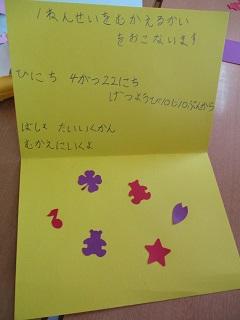 1ねんせいをむかえるかい
をおこないます
ひにち 4がつ22にち
げつようび10じ10ぷんから
ばしょ たいいくかん
むかえにいくよ